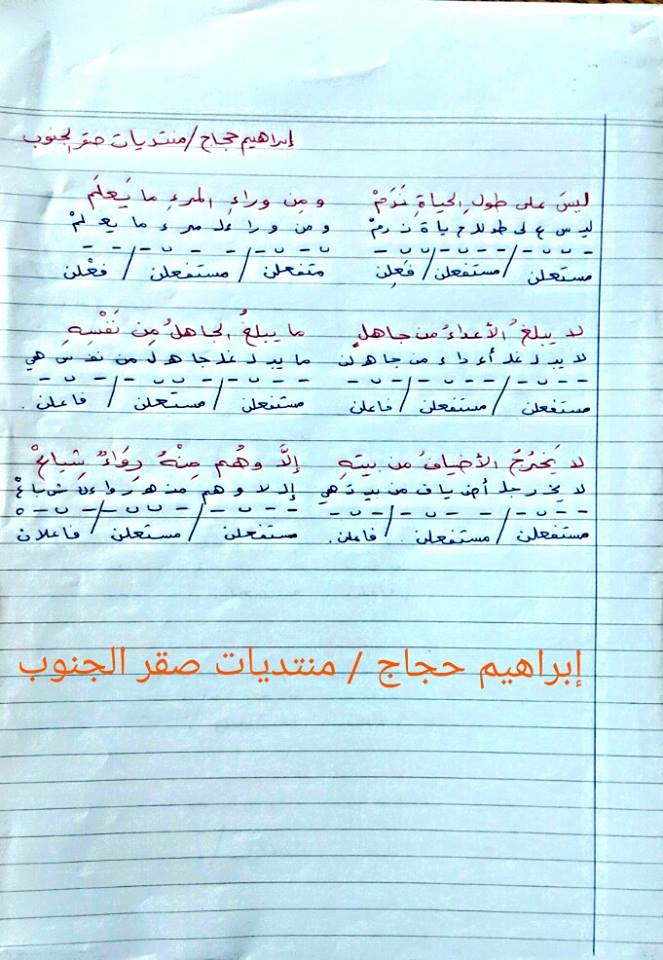 إبراهيم حجاج / منتديات صقر الجنوب
ليسَ على طولِ الحياةِ نَدَمْ ومِن وراءِ المرءِ ما يَعلَم
ليس ع لى طول لح ياة ن دمْ ومن ورا ءل مرء ما يع لمْ
– ں ں – / – – ں – / ں ں – ں – ں – / – – ں – / – –
مستعلن / مستفعلن / فَعِلن متفعلن / مستفعلن / فعْلن
لا يبلغُ الأعداءُ من جاهلٍ ما يبلغُ الجاهلُ مِن نَفْسِهِ
لا يب ل غل أع داء من جاهلن ما يب ل غل جاهل من نف س هي
– – ں – / – – ں – / – ں – – – ں – / – ں ں – / – ں –
مستفعلن / مستفعلن / فاعلن مستفعلن / مستعلن / فاعلن .
لا يَخرُجُ الأضيافُ من بيتهِ إلَّا وهُم مِنْهُ رِوَاءٌ شِباعْ
لا يخ ر جل أض ياف من بي ت هي إل لا وهم من هر واءن ش باعْ
– – ں – / – – ں – / – ں – – – ں – / – ں ں – / – ں – ه
مستفعلن / مستفعلن / فاعلن . مستفعلن / مستعلن / فاعلان
إبراهيم حجاج / منتديات صقر الجنوب